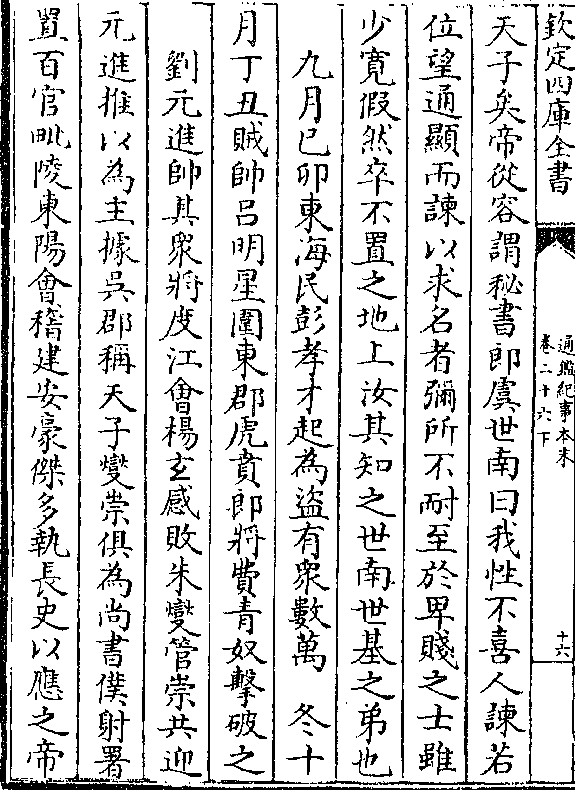 欽定四庫全書
通鑑紀事本末
卷二十六下
十六
天子矣帝從容謂秘書郎虞世南曰我性不喜人諫若
位望通顯而諫以求名者彌所不耐至於卑賤之士雖
少寛假然卒不置之地上汝其知之世南世基之弟也
九月己卯東海民彭孝才起為盜有衆數萬　冬十
月丁丑賊帥呂明星圍東郡虎賁郎將費青奴擊破之
劉元進帥其衆將度江會楊玄感敗朱燮管崇共迎
元進推以為主據吳郡稱天子燮崇俱為尚書僕射署
置百官毗陵東陽會稽建安豪傑多執長史以應之帝